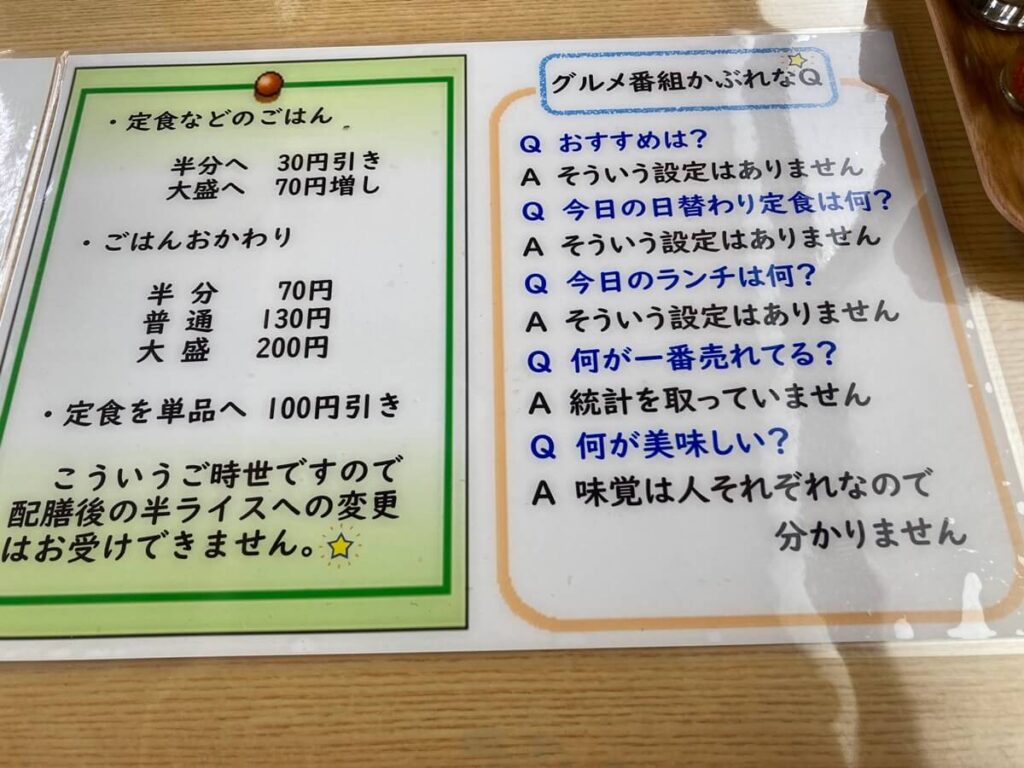 ・定食などのごはん
半分へ 30円引き
大盛へ 70円増し
・ごはんおかわり
半分 70円
普通 130円
大盛 200円
・定食を単品へ 100円引き
こういうご時世ですので
配膳後の半ライスへの変更
はお受けできません。
グルメ番組かぶれなQ
Q おすすめは?
A そういう設定はありません
Q 今日の日替わり定食は何?
A そういう設定はありません
Q 今日のランチは何?
A そういう設定はありません
Q 何が一番売れてる?
A 統計を取っていません
Q 何が美味しい?
A 味覚は人それぞれなので
分かりません